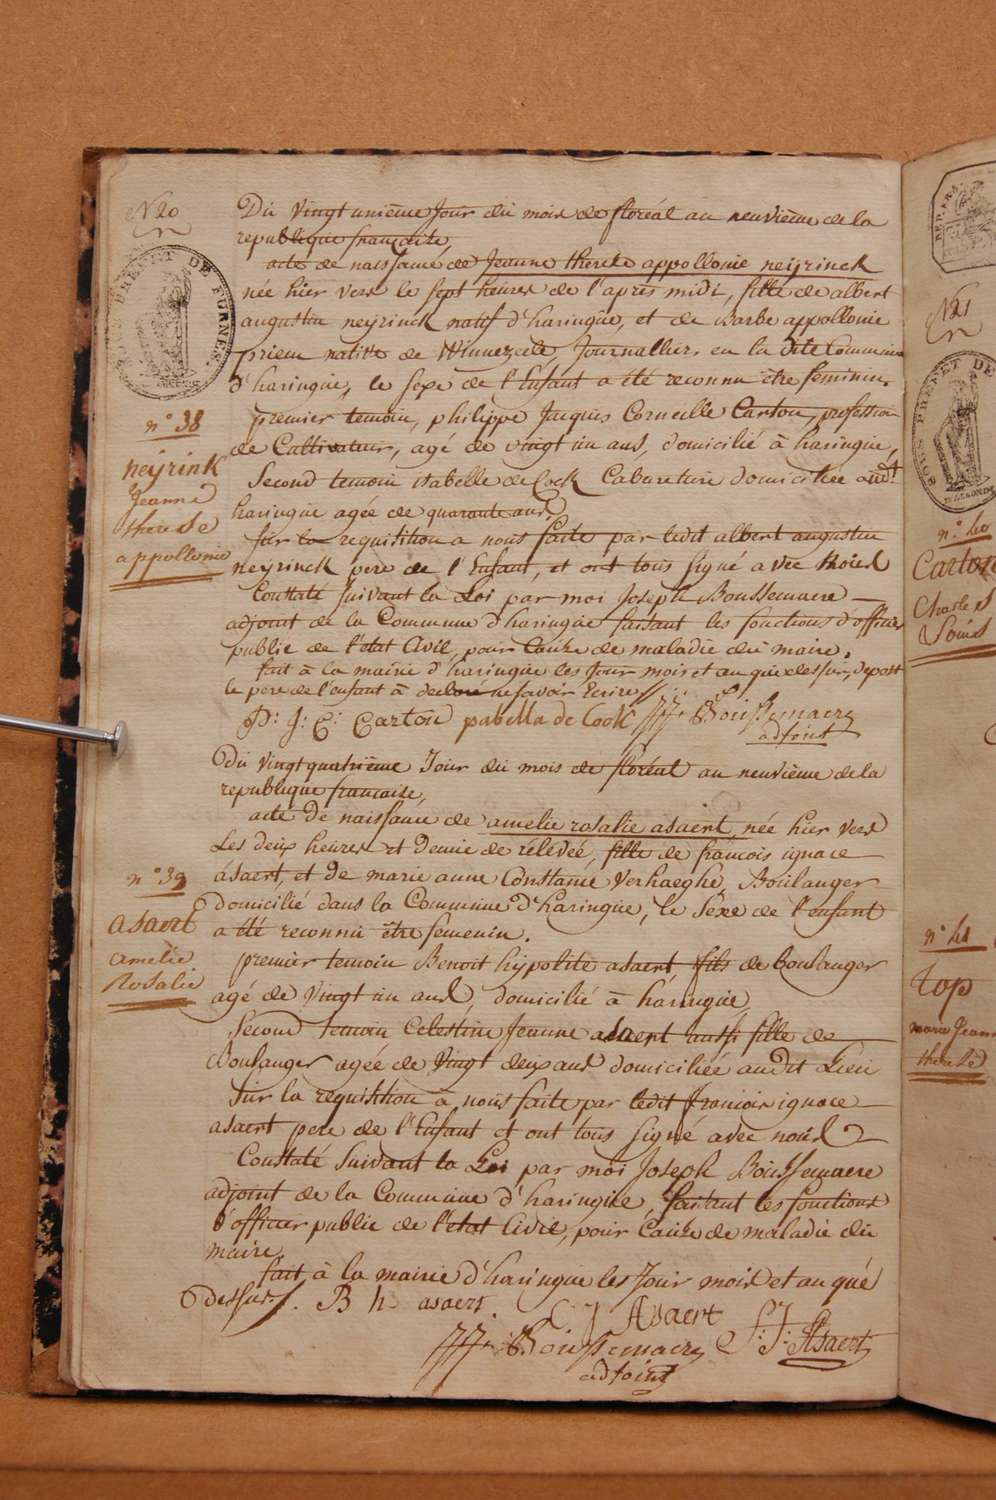 N 20
SOUS PREFET DE FURNES.
n° 38
neyrink
Jeanne
therese
appollonie
Du vingt unième Jour du mois de floréal an neuvième de la
republique francaise,
acte de naissance de Jeanne therese appollonie neyrinck
née hier vers le sept heures de l'après midi, fille de albert
augustin neyrinck natif d'haringue, et de Barbe appollonie
prieur native de Winnezeele, Journallier, en la dite Commune
d'haringue, le sexe de l'Enfant a été reconnu être feminin.
premier temoin, philippe Jacques Corneille Carton, profession
de Cultivateur, agé de vingt un ans, domicilié à haringue,
Second temoin isabelle de Cock Cabaretiere domiciliée audt
haringue agée de quarante ans
Sur la requisition a nous faite par ledit albert augustin
neyrinck pere de l'Enfant, et ont tous signé avec nous
Constaté suivant la Loi par moi Joseph Boussemaere
adjoint de la Commune d'haringue faisant les fonctions d'officier
public de l'état Civil, pour Cause de maladie du maire.
fait à la mairie d'haringue les Jour mois et an que dessus, depost
le pere de l'enfant à declaré ne savoir Ecrire
P: J: C: Carton isabella de Cock JJ. Boussemaere
adjoint
n° 39
asaert
amelie
Rosalie
Du vingt quatrième Jour du mois de floréal an neuvième de la
republique francaise,
acte de naissance de amelie rosalie asaert, née hier vers
Les deux heures et demie de rélevée, fille de francois ignace
asaert, et de marie anne Constance Verhaeghe, Boulanger
domicilié dans la Commune d'haringue, le Sexe de l'enfant
a été reconnu être femenin.
premier temoin Benoit hypolite asaert, fils de boulanger
agé de Vingt un ans, domicilié à haringue,
Second temoin Celestine Jeanne asaert aussi fille de
Boulanger agée de Vingt deux ans domiciliée au dit Lieu
Sur la requisition a nous faite par ledit francois ignace
asaert pere de l'Enfant et ont tous signé avec nous
Constaté Suivant la Loi par moi Joseph Boussemaere
adjoint de la Commune d'haringue, faisant les fonctions
d'officier public de l'état Civil, pour Cause de maladie du
maire,
fait à la mairie d'haringue les Jour mois et an qué
dessus. B h asaert C J Asaert
JJ. Boussemaere F: J: Asaert
adjoint
N 21
SOUS PREFET DE
n° 40
Carton
Charles
Louis
n° 41
Top
marie Jeanne
therese